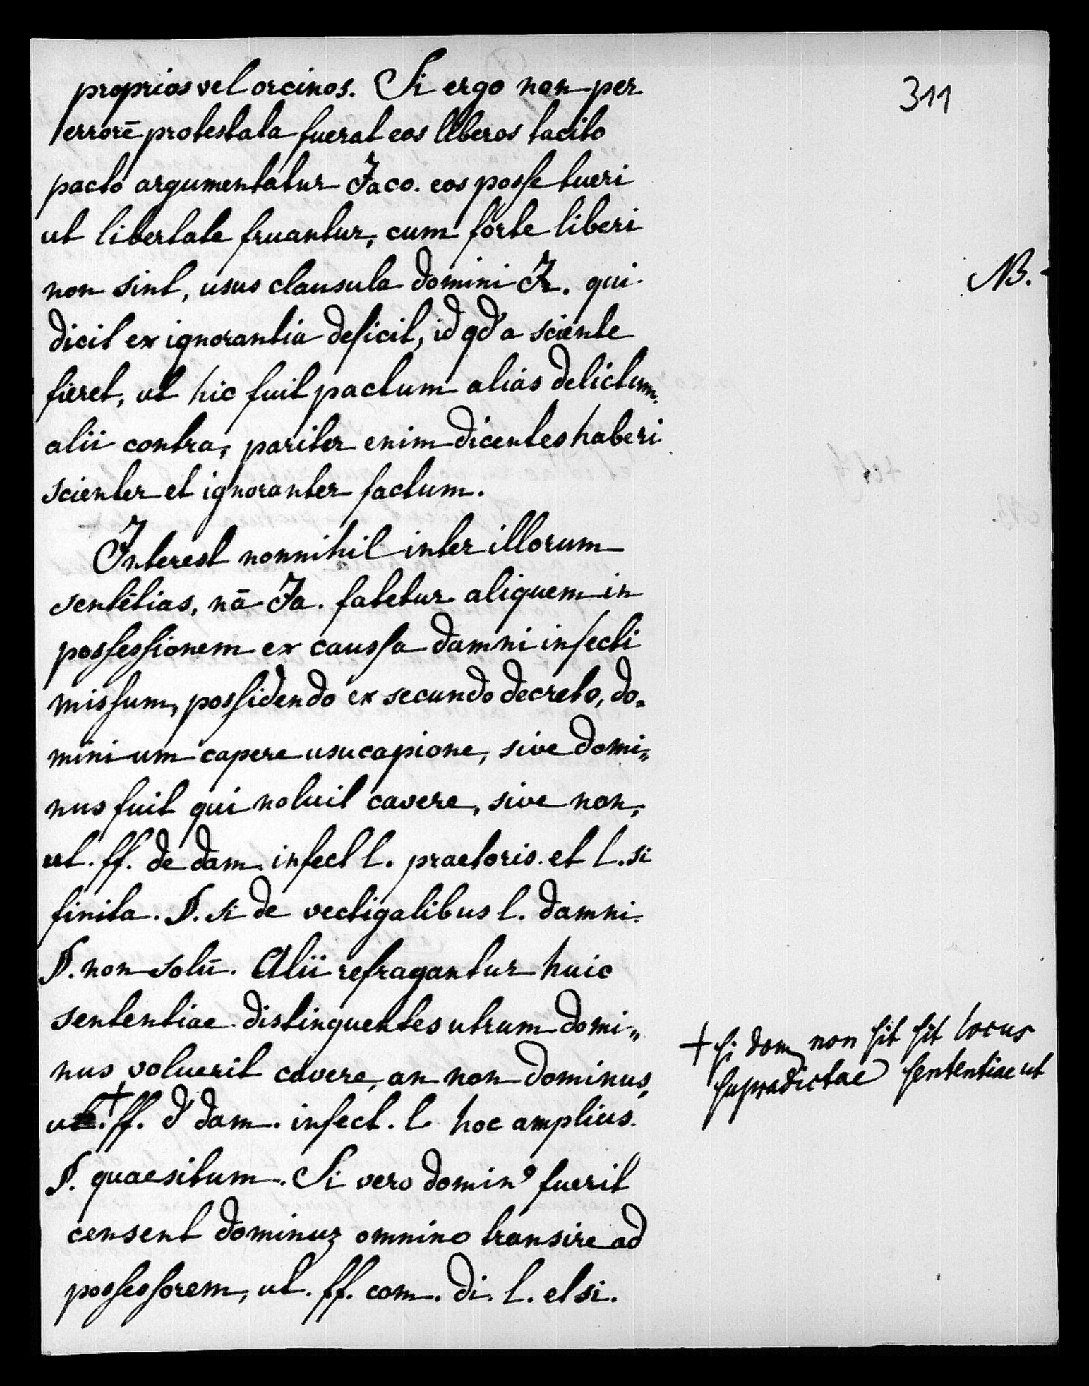 311
proprios vel orcinos. Si ergo non per
errorē protestata fuerat eos liberos tacito
pacto argumentatur Jaco. eos posse tueri
ut libertate fruantur, cum forte liberi
non sint, usus clausula domini Jr. qui
NB.
dicit ex ignorantia deficit, id qd' a sciente
fieret, ut hic fuit pactum alias delictum.
alii contra, pariter enim dicentes haberi
scienter et ignoranter factum.
Interest nonnihil inter illorum
sentētias, nā Ja. fatetur aliquem in
possessionem ex caussa damni infecti
missum, possidendo ex secundo decreto, do„
minium capere usucapione, sive domi„
nus fuit qui noluit cavere, sive non,
ut. ff. de dam. infect l. praetoris. et l. si
finita. §. si de vectigalibus l. damni.
§. non solū. Alii refragantur huic
sententiae distinguentes utrum domi„
nus voluerit cavere, an non dominus,
+ si dom non sit sit locus
supradictae sententiae ut
ut.+ ff. d' dam. infect. l. hoc amplius.
§. quaesitum. Si vero dominꝰ fuerit
censent dominuz omnino transire ad
possessorem, ut. ff. com. di. l. et si.